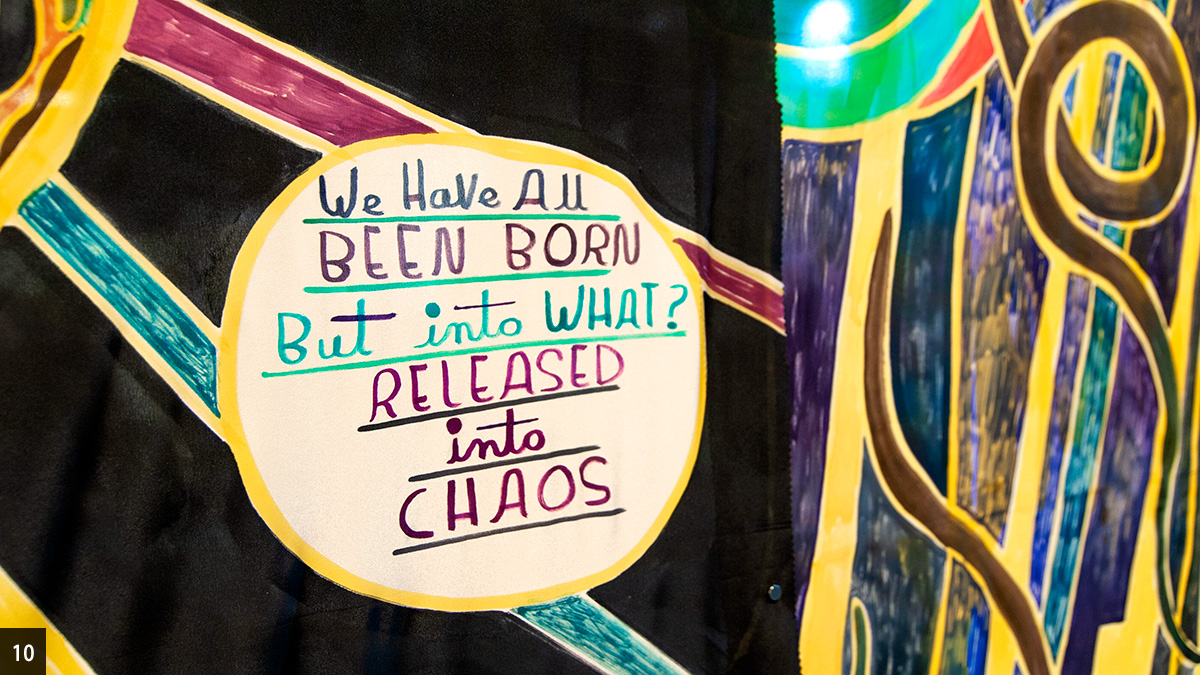 We Have All
BEEN BORN
But into WHAT?
RELEASED
into
CHAOS
10